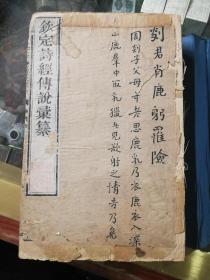 欽定詩經傳說彙纂
劉君肖鹿躬罹險
周剡子父母年老思鹿乳乃衣鹿衣入深
山鹿羣中取乳獵者見欲射之情告乃免